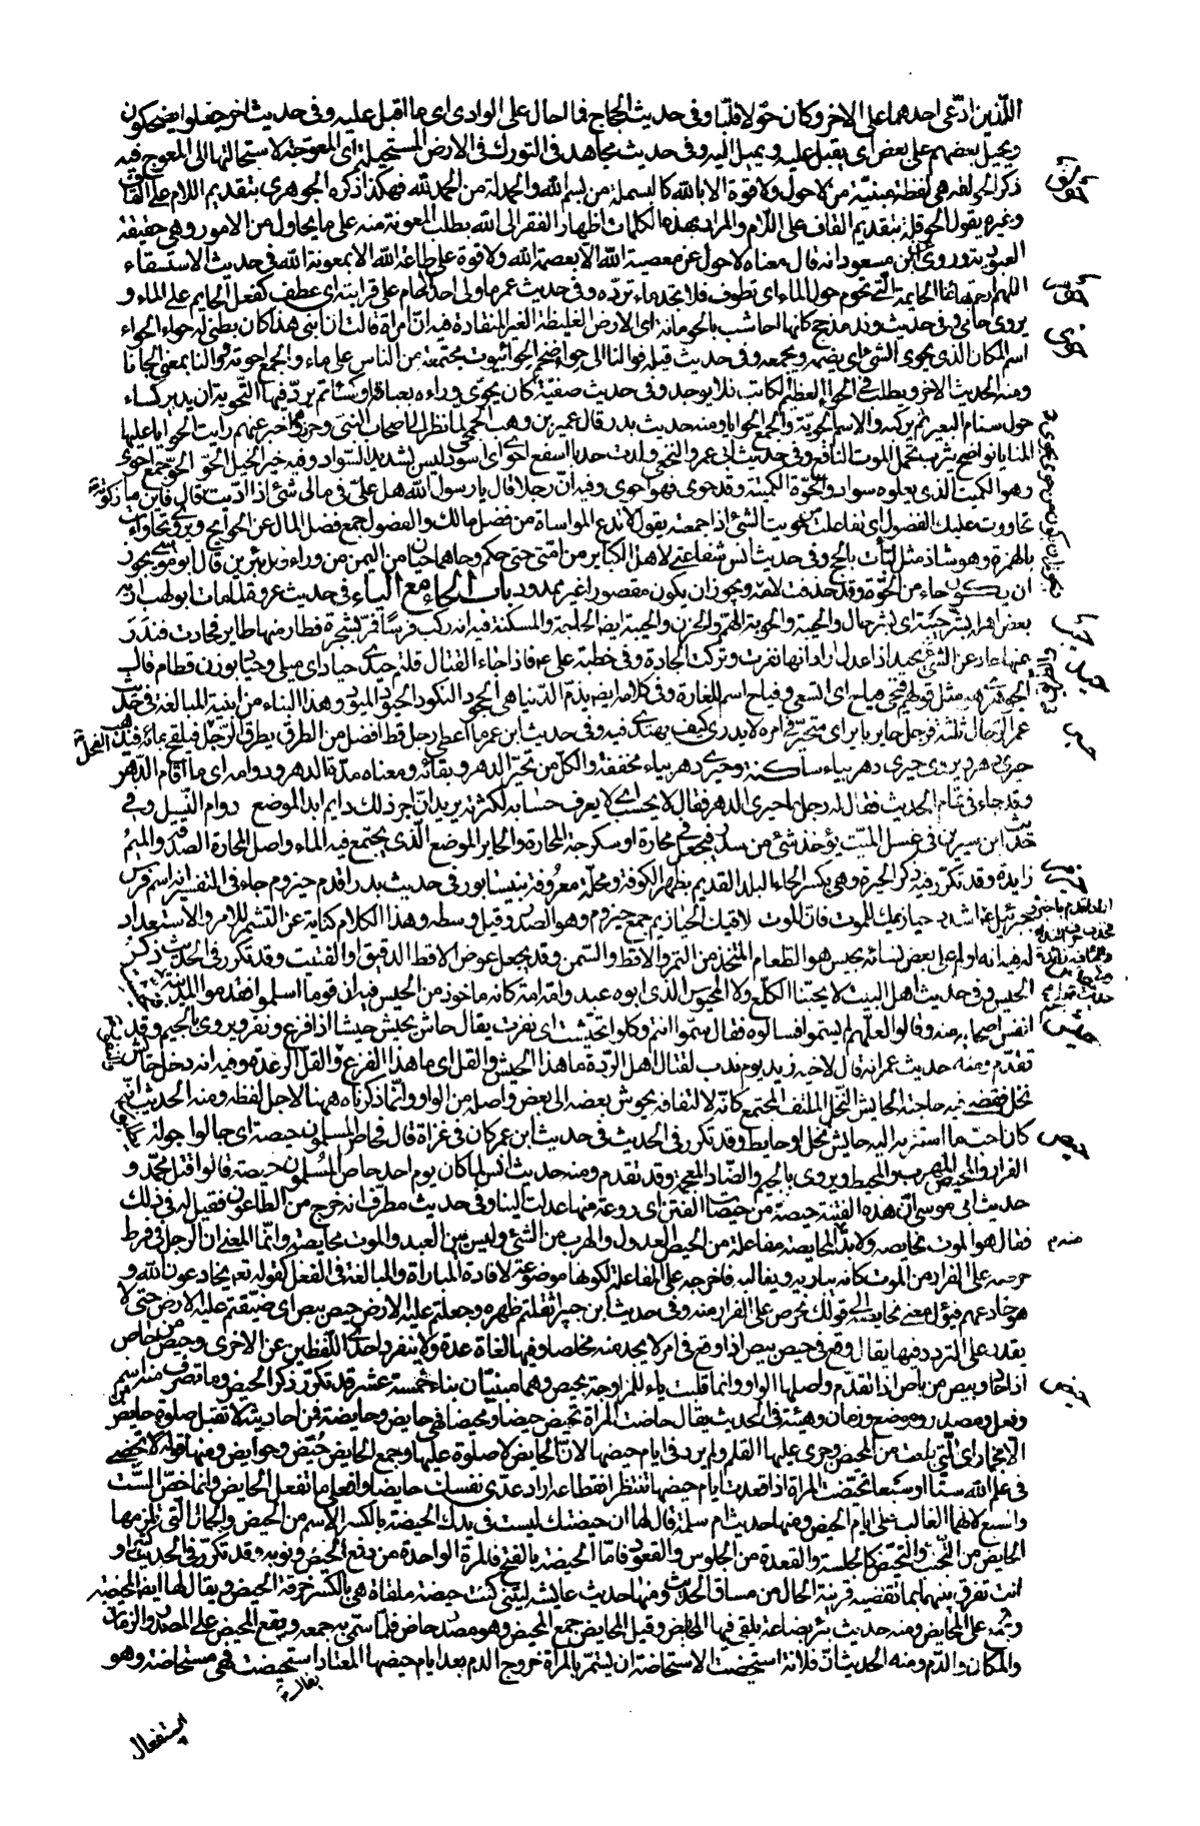 اللذين ادعى احدهما على الاخر وكان حولا قلبا وفى حديث الحجاج فما احال على الوادى اى ما اقبل عليه وفى حديث اخر فجعلوا يضحكون
ويحيل بعضهم على بعض اى يقبل عليه ويميل اليه وفى حديث مجاهد فى التورك فى الارض المستحيلة اى المعوجة لاستحالتها الى العوج فيه
ذكر الحولقه هى لفظة مبنية من لا حول ولا قوة الا بالله كالبسملة من بسم الله والحمدلة من الحمد لله فهكذا ذكره الجوهرى بتقديم اللام على القاف
وغيره يقول الحوقلة بتقديم القاف على اللام والمراد بهذه الكلمات اظهار الفقر الى الله بطلب المعونة منه على ما يحاول من الامور وهى حقيقة
العبودية وروى عن ابن مسعود انه قال معناه لا حول عن معصية الله الا بعصمة الله ولا قوة على طاعة الله الا بمعونة الله فى حديث الاستسقاء
اللهم ارحم بهائمنا الحايمة التى تحوم حول الماء اى تطوف فلا تجد ماء ترده وفى حديث عمر ما ولى احد الا حام على قرابته اى عطف كفعل الحايم على الماء و
يروى حامى فى حديث وفد مذحج كانها اخاشب بالحومانة اى الارض الغليظة المنقادة فيه ان امراة قالت ان ابنى هذا كان بطنى له حواء الحواء
اسم المكان الذى يحوى الشئ اى يضمه ويجمعه وفى حديث قيلة فوالنا الى حواء ضخم الحواء بيوت مجتمعة من الناس على ماء والجمع احوية ووالنا بمعنى لجانا
ومنه الحديث الاخر ويطلب فى الحواء العظيم الكاتب فلا يوجد وفى حديث صفية كان يحوى وراءه بعباءة او كساء ثم يردفها التحوية ان يدير كساء
حول سنام البعير ثم يركبه والاسم الحوية والجمع الحوايا ومنه حديث بدر قال عمير بن وهب الجمحى لما نظر الى اصحاب النبى وحزرهم واخبر عنهم رايت الحوايا عليها
المنايا نواضح يثرب تحمل الموت الناقع وفى حديث ابى عمرو النخعى ولدت جديا اسفع احوى اى اسود ليس بشديد السواد وفيه خير الخيل الحو الحو جمع احوى
وهو الكميت الذى يعلوه سواد والحوة الكمتة وقد حوى فهو احوى وفيه ان رجلا قال يا رسول الله هل على فى مالى شئ اذا اديت زكوته قال فاين ما
تحاوت عليك الفضول اى تفاعلت من حويت الشئ اذا جمعته يقول لا تدع المواساة من فضل مالك والفضول جمع فضل المال عن الحوايج ويروى تحاوات
بالهمزة وهو شاذ مثل لبات بالحج وفى حديث انس شفاعتى لاهل الكبائر من امتى حتى حكم وحا هما حيان من اليمن من وراء رمل يبرين قال ابو موسى يجوز
ان يكون حاء من الحوة وقد حذفت لامه ويجوز ان يكون مقصورا غير ممدود باب الحاء مع الياء فى حديث عروة لما مات ابو لهب اريه
بعض اهله بشر حيبة اى بشر حال والحيبة والحوبة الهم والحزن والحيبة ايضا الحاجة والمسكنة فيه انه ركب فرسا فمر بشجرة فطار منها طاير فحادت فندر
عنها حاد عن الشئ يحيد اذا عدل اراد انها نفرت وتركت الجادة وفى خطبة على ع فاذا جاء القتال قلتم حيدى حياد اى ميلى وحياد بوزن قطام قال
الجوهرى هو مثل قولهم فيحى فياح اى اتسعى وفياح اسم للغارة وفى كلامه ايضا يذم الدنيا هى الجحود الكنود الحيود الميود وهذا البناء من ابنية المبالغة فى حديث
عمر الرجال ثلثة فرجل حاير باير اى متحير فى امره لا يدرى كيف يهتدى فيه وفى حديث ابن عمر ما اعطى رجل قط افضل من الطرق يطرق الرجل الفحل فيلقح مائة فيذهب
حيرى دهر ويروى حيرى دهر بياء ساكنة وحيرى دهر بياء مخففة والكل من تحير الدهر وبقائه ومعناه مدة الدهر ودوامه اى ما اقام الدهر
وقد جاء فى تمام الحديث فقال له رجل ما حيرى الدهر فقال لا يحسب اى لا يعرف حسابه لكثرته يريد ان اجر ذلك دايم ابدا لموضع دوام النسل وفى
حديث ابن سيرين فى غسل الميت يؤخذ شئ من سدر فيجعل فى محارة او سكرجة المحارة والحاير الموضع الذى يجتمع فيه الماء واصل المحارة الصدفة والميم
زايدة وقد تكرر فيه ذكر الحيرة وهى بكسر الحاء البلد القديم بظهر الكوفة ومحلة معروفة بنيسابور فى حديث بدر اقدم حيزوم جاء فى التفسير انه اسم فرس
جبرئيل ع اشدد حيازيمك للموت فان الموت لاقيك الحيازيم جمع حيزوم وهو الصدر وقيل وسطه وهذا الكلام كناية عن التشمر للامر والاستعداد
له فيه انه اولم على بعض نسائه بحيس هو الطعام المتخذ من التمر والاقط والسمن وقد يجعل عوض الاقط الدقيق او الفتيت وقد تكرر فى الحديث ذكر
الحيس وفى حديث اهل البيت لا يحبنا اللكع ولا المحيوس الذى ابوه عبد وامه امة كانه ماخوذ من الحيس فيه ان قوما اسلموا فقدموا المدينة
انفس اصحابه منه وقالوا لعلهم لم يسموا فسالوه فقال سموا انتم وكلوا تحيشت اى نفرت يقال حاش يحيش حيشا اذا فزع ونفر ويروى بالجيم وقد
تقدم ومنه حديث عمر انه قال لاخيه زيد يوم ندب لقتال اهل الردة ما هذا الحيش والقل اى ما هذا الفزع والقل الرعدة وفيه انه دخل حائش
نخل فقضى فيه حاجته الحايش النخل الملتف المجتمع كانه لالتفافه يحوش بعضه الى بعض واصله من الواو وانما ذكرناه ههنا لاجل لفظه ومنه الحديث انه
كان احب ما استتر به اليه حايش نخل او حايط وقد تكرر فى الحديث فى حديث ابن عمر كان فى غزاة قال فحاص المسلمون حيصة اى جالوا جولة
الفرار والمحيص المهرب والمحيد ويروى بالجيم والضاد المعجمة وقد تقدم ومنه حديث انس لما كان يوم احد حاص المسلمون حيصة قالوا قتل محمد و
حديث ابى موسى ان هذه الفتنة حيصة من حيصات الفتن اى روغة منها عدلت الينا وفى حديث مطرف انه خرج من الطاعون فقيل له فى ذلك
فقال هو الموت نحايصه ولا بد منه المحايصة مفاعلة من الحيص العدول والهرب من الشئ وليس بين العبد والموت محايصة وانما المعنى ان الرجل فى فرط
حرصه على الفرار من الموت كانه يباريه ويغالبه فاخرجه على المفاعلة لكونها موضوعة لافادة المباراة والمبالغة فى الفعل كقوله تعالى يخادعون الله و
هو خادعهم فيؤل معنى نحايصه الى قولك نحرص على الفرار منه وفى حديث ابن جبير اثقلتم ظهره وجعلتم عليه الارض حيص بيص اى ضيقتم عليه الارض حتى لا
يقدر على التردد فيها يقال وقع فى حيص بيص اذا وقع فى امر لا يجد منه مخلصا وفيها لغات عدة ولا ينفرد احدى اللفظين عن الاخرى وحيص من حاص
اذا حاد وبيص من باص اذا تقدم واصلها الواو وانما قلبت ياء للمزاوجة بحيص وهما مبنيان بناء خمسة عشر قد تكرر ذكر الحيض وما تصرف منه من اسم
وفعل ومصدر وموضع وزمان وهيئة فى الحديث يقال حاضت المراة تحيض حيضا ومحيضا فهى حايض وحايضة فمن احاديثه لا تقبل صلوة حايض
الا بخمار اى التى بلغت سن المحيض وجرى عليها القلم ولم يرد فى ايام حيضها لان الحايض لا صلوة عليها وجمع الحايض حيض وحوايض ومنها قوله تحيضى
فى علم الله ستا او سبعا تحيضت المراة اذا قعدت ايام حيضها تنتظر انقطاعه اراد عدى نفسك حايضا وافعلى ما تفعل الحايض وانما خص الست
والسبع لانهما الغالب على ايام الحيض ومنها حديث ام سلمة قال لها ان حيضتك ليست فى يدك الحيضة بالكسر الاسم من الحيض والحال التى تلزمها
الحايض من التجنب والتحيض كالجلسة والقعدة من الجلوس والقعود فاما الحيضة بالفتح فالمرة الواحدة من دفع الحيض ونوبه وقد تكرر فى الحديث كثيرا و
انت تفرق بينهما بما تقتضيه قرينة الحال من مساق الحديث ومنها حديث عايشة ليتنى كنت حيضة ملقاة هى بالكسر خرقة الحيض ويقال لها ايضا المحيضة
وتجمع على المحايض ومنه حديث بئر بضاعة يلقى فيها المحايض وقيل المحايض جمع المحيض وهو مصدر حاض فلما سمى به جمعه ويقع المحيض على المصدر والزمان
والمكان والدم ومنه الحديث ان فلانة استحيضت الاستحاضة ان يستمر بالمراة خروج الدم بعد ايام حيضها المعتاد يقال استحيضت فهى مستحاضة وهو
استفعال